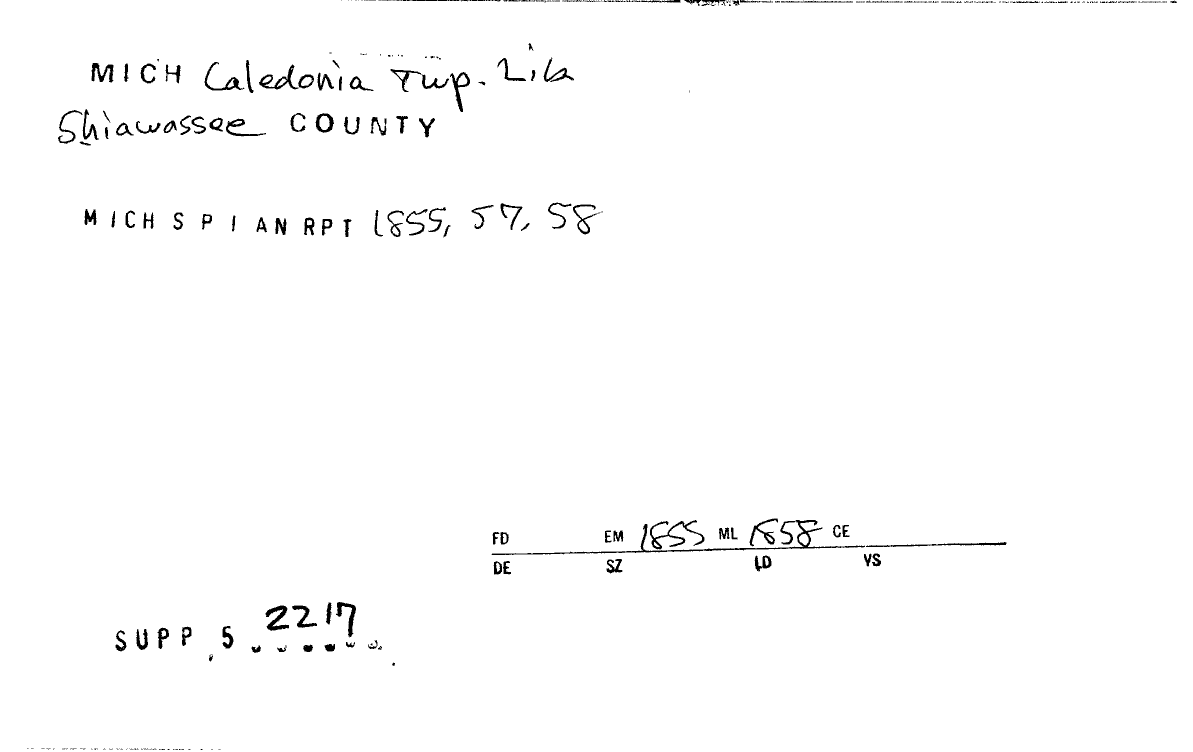 MICH Caledonia Twp. Lib
Shiawassee COUNTY
MICH S P I AN RPT 1855, 57, 58
FD EM 1855 ML 1858 CE
DE SZ LD VS
SUPP 5 2217